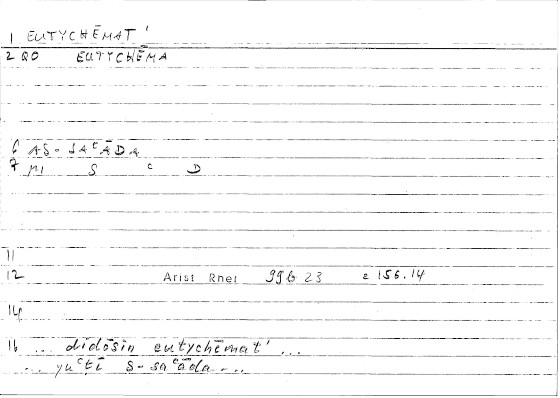 1 EUTYCHĒMAT'
2 QO EUTYCHĒMA
6 AS-SAᶜĀDA
7 S ᶜ D
11
12 Arist Rhet 99b 23 = 156.14
14
16 ... didōsin eutychēmat' ...
... yuᶜṭī s-saᶜāda ...